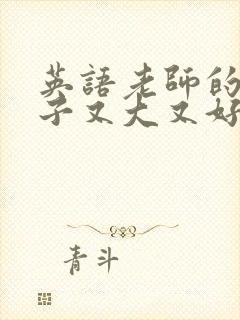 英語老師的
子又大又好
青斗